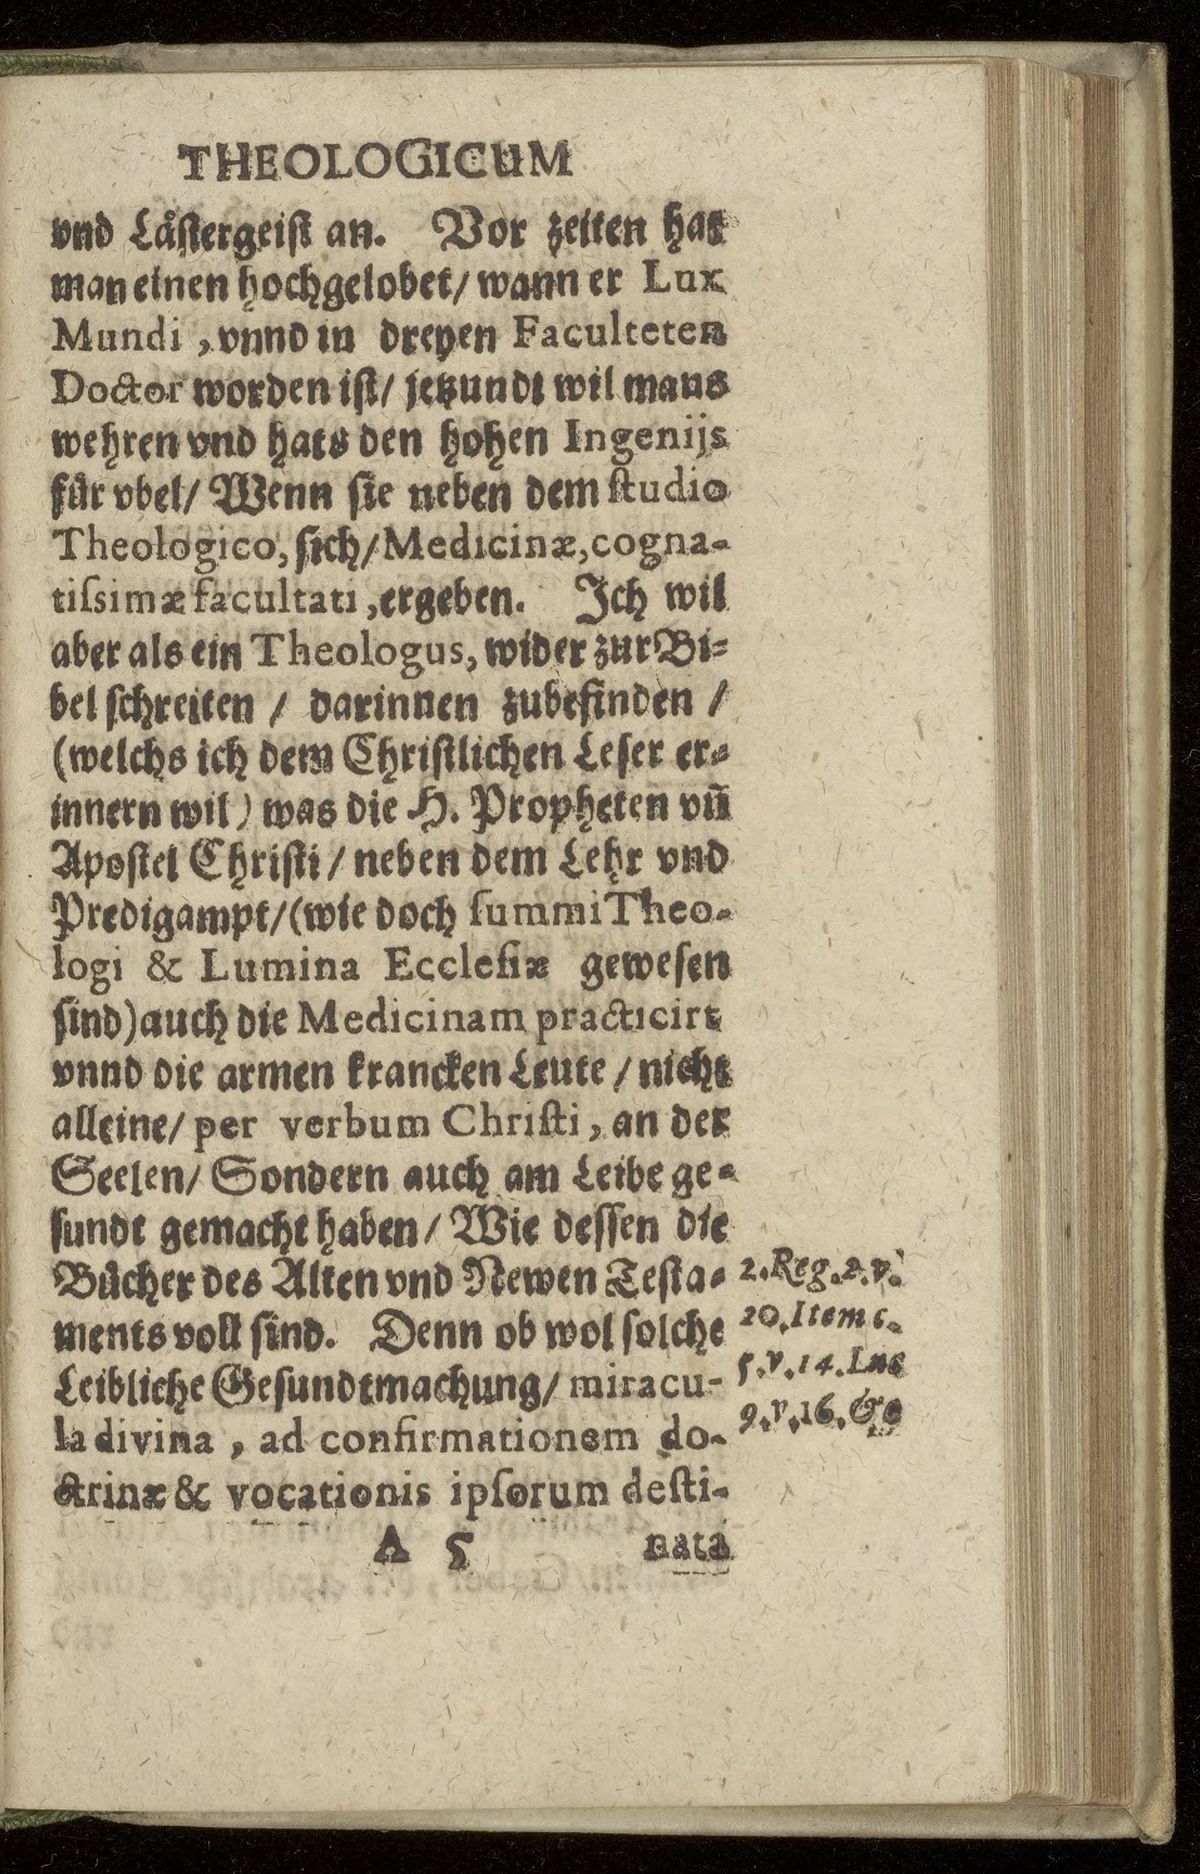 THEOLOGICUM
vnd Låſtergeiſt an. Vor zeiten hat
man einen hochgelobet/ wann er Lux
Mundi, vnnd in dreyen Faculteten
Doctor worden iſt/ jetzundt wil mans
wehren vnd hats den hohen Ingenijs
fůr vbel/ Wenn ſie neben dem ſtudio
Theologico, ſich/ Medicinæ, cogna-
tiſsimæ facultati, ergeben. Ich wil
aber als ein Theologus, wider zur Bi-
bel ſchreiten / darinnen zubefinden /
(welchs ich dem Chriſtlichen Leſer er-
innern wil) was die H. Propheten vñ
Apoſtel Chriſti/ neben dem Lehr vnd
Predigampt/ (wie doch ſummi Theo-
logi & Lumina Eccleſiæ geweſen
ſind) auch die Medicinam practicirt
vnnd die armen krancken Leute / nicht
alleine/ per verbum Chriſti, an der
Seelen/ Sondern auch am Leibe ge-
ſundt gemacht haben/ Wie deſſen die
Bůcher des Alten vnd Newen Teſta-
ments voll ſind. Denn ob wol ſolche
Leibliche Geſundtmachung/ miracu-
la divina, ad confirmationem do-
ctrinæ & vocationis ipſorum deſti-
A 5 nata
2. Reg. 2. v.
20. Item c.
5. v. 14. Luc
9. v. 16. &c